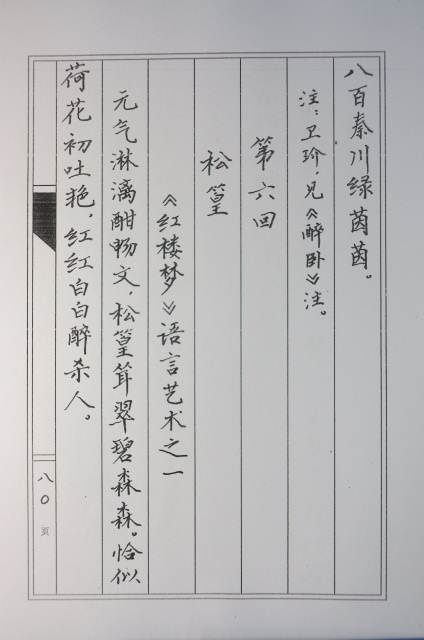 八百秦川绿茵茵。
注：卫玠，见《醉卧》注。
第六回
松篁
《红楼梦》语言艺术之一
元气淋漓酣畅文，松篁耸翠碧森森。恰似
荷花初吐艳，红红白白醉杀人。
八〇页